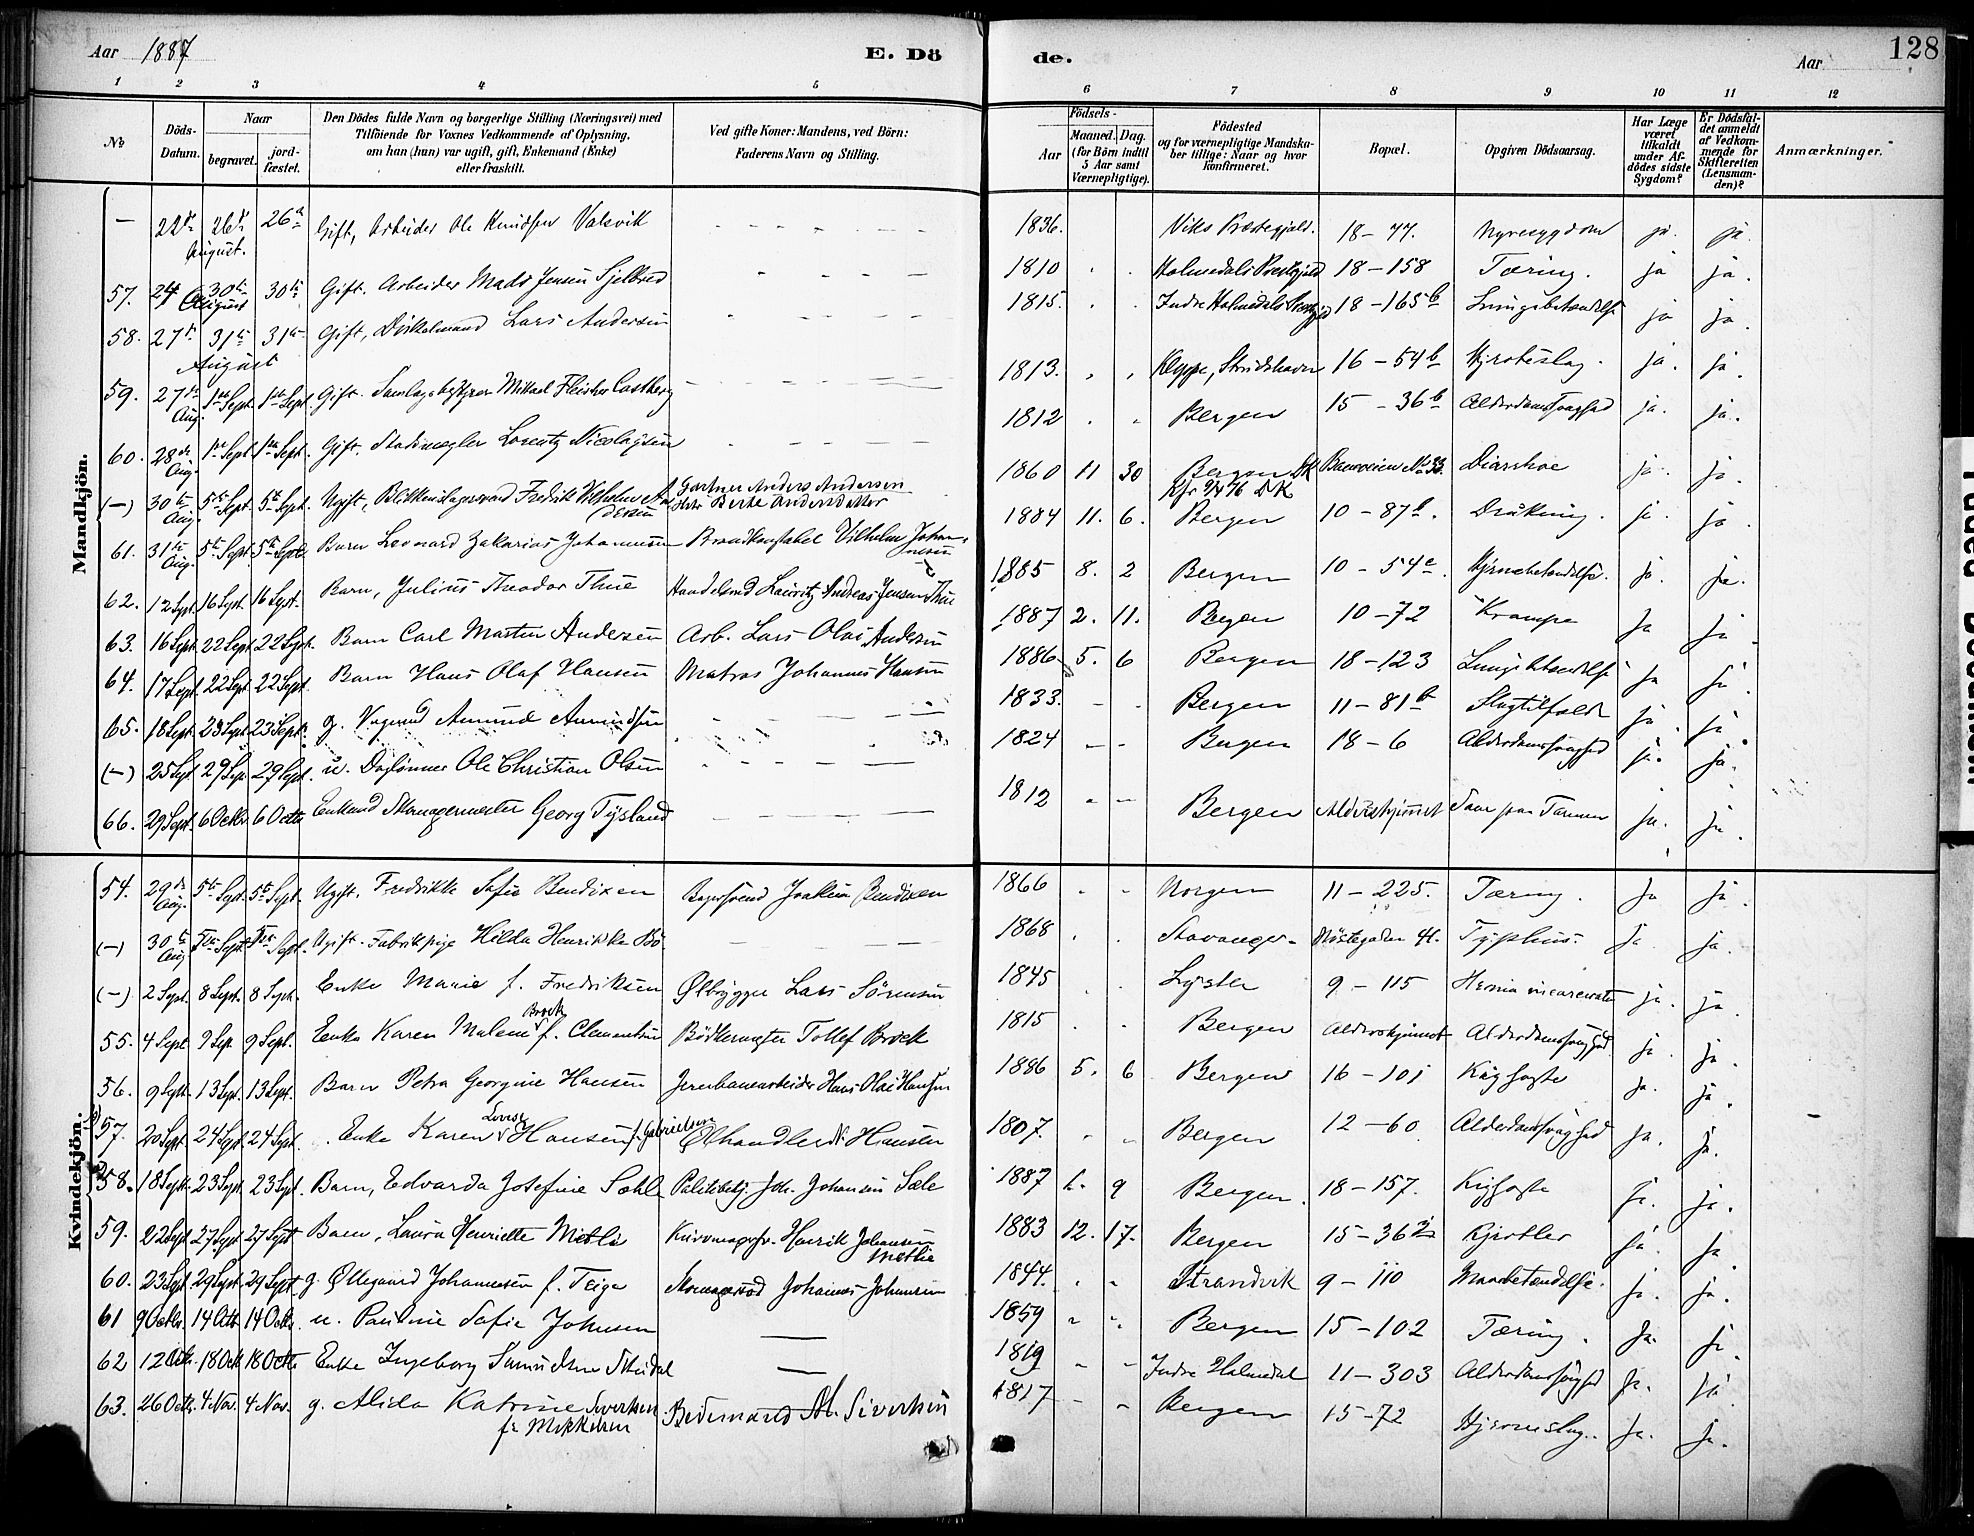 Aar 1887 E. Dö de. Aar 128
1 2 3 4 5 6 7 8 9 10 11 12
No Döds-Datum. Naar begravet. jord-fæstet. Den Dödes fulde Navn og borgerlige Stilling (Næringsvei) med Tilföiende for Voxnes Vedkommende af Oplysning, om han (hun) var ugift, gift, Enkemand (Enke) eller fraskilt. Ved gifte Koner: Mandens, ved Börn: Faderens Navn og Stilling. Födsels- Aar Maaned. Dag. (for Börn indtil 5 Aar samt Værnepligtige). Födested og for værnepligtige Mandska-ber tillige: Naar og hvor konfirmeret. Bopæl. Opgiven Dödsaarsag. Har Læge været tilkaldt under Af-dödes sidste Sygdom? Er Dödsfal-det anmeldt af Vedkom-mende for Skifteretten (Lensman-den)? Anmærkninger.
Mandkjön.
— 22de 26de August. 26de Gift, Arbeider Ole Knudsen Valsvik 1836. Viks Præstegjeld. 18-77. Nyresygdom ja. ja.
57. 24 30te August 30te Gift. Arbeider Mads Jensen 1810 Holmedals Præstegjeld 18-158 Tæring. ja ja.
58. 27de 31te August 31te Gift, Lars Andersen 1815. Indre Holmedals 18-165b Lungebetændelse ja ja.
59. 27de Aug. 1ste Sept. 1ste Sept. Gift. Mikael Fleischer Castberg 1813. 16-54b ja. ja.
60. 28de Aug. 1ste Sept. 1ste Sept. Gift. Lorentz Nicolaysen 1812 Bergen 15-36b Alderdomssvaghed ja. ja.
(-) 30te Aug. 5te Sept. 5te Sept. Ugift, Fredrik Vilhelm Andersen Gartner Anders Andersen Berte Andersdatter 1860 11 30 Bergen DK 76 DK No 33. Diarrhoe ja. ja.
61. 31te Aug. 5te Sept. 5te Sept. Barn Leonard Zakarias Johannesen Brandkonstabel Vilhelm Johannesen 1884 11. 6. Bergen 10-87b. ja. ja.
62. 12 Sept. 16 Sept. 16 Sept. Barn, Julius Theodor Thue Handelsmd Lauritz Andreas Jensen Thue 1885 8. 2 Bergen 10-54c. ja. ja.
63. 16 Sept. 22 Sept. 22 Sept. Barn Carl Martin Andersen Arb. Lars Olai Andersen 1887 2. 11. Bergen 10-72 Krampe ja ja.
64. 17 Sept. 22 Sept. 22 Sept. Barn Hans Olaf Hansen Matros Johannes Hansen 1886 5. 6 Bergen 18-123 Lungebetændelse ja ja.
65. 18 Sept. 23 Sept. 23 Sept. g. Amund Amundsen 1833. Bergen 11-81b Slagtilfælde ja. ja.
(-) 25 Sept. 29 Sep. 29 Sept. u. Daglønner Ole Christian Olsen 1824 Bergen 18-6 Alderdomssvaghed ja. ja.
66. 29 Sept. 6 Octbr. 6 Octbr. Enkemd Skomagermester Georg Tysland 1812 Bergen Aldershjemmet Saar paa Tarmen ja. ja.
Kvindekjön.
54. 29de Aug. 5te Sept. 5te Sept. Ugift. Fredrikke Sofie Bendixen Bagersvend Joakim Bendixen 1866 11-225. Tæring. ja ja.
(-) 30te Aug. Sept. Sept. Ugift. Fabrikpige Hilda Henrikke Bö 1868 Stavanger. Nöstegaden 41. Typhus. ja. ja.
(-) 2 Sept. 8 Sept. 8 Sept. Enke Marie f. Fredriksen Ølbrygger Lars Sörensen 1845 Lyster 9-115 Hernia incarcerata ja. ja
55. 4 Sept. 9 Sep. 9 Sept. Enke Karen Malene Brock f. Clementsen Bödkermester Tollef Brock 1815 Bergen Aldershjemmet Alderdomssvaghed ja. ja
56. 9 Sept. 13 Sept. 13 Sept. Barn Petra Georgine Hansen Jernbanearbeider Hans Olai Hansen 1886 5. 6 Bergen 16-101 Kighoste ja. ja.
57. 20 Sept. 24 Sept. 24 Sept. Enke Karen Lovise Hansen f. Gabrielsen Ølhandler Hansen 1807. Bergen 12-60 Alderdomssvaghed ja. ja.
58. 18 Sept. 23 Sept. 23 Sept. Barn, Edvarda Josefine Politibetj. Joh. Johansen Sæle 1887 9 Bergen. 18-157. Kighoste ja. ja.
59. 22 Sept. 27 Sept. 27 Sept. Barn, Laura Henriette Metlie Henrik Johansen Metlie 1883 12. 17. Bergen 15-36 Kjertler ja. ja
60. 23 Sept. 29 Sept. 29 Sept. g. Øllegaard Johannesen f. Teige Johannes Johannesen 1844. Strandvik 9-110 ja. ja.
61 9 Octbr. 14 Octb. 14 Octbr. u. Pauline Sofie Johnsen 1859 Bergen 15-102 Tæring. ja. ja.
62 12 Octb. 18 Octb. 18 Octb. Enke Ingeborg 1819 Indre Holmedal 11-303 Alderdomssvaghed ja. ja
63. 26 Octb. 4 Nov. 4 Nov. g. Alida Katrine Sivertsen f. Mikkelsen Bedemand M. Sivertsen 1817 Bergen 15-72 ja. ja.